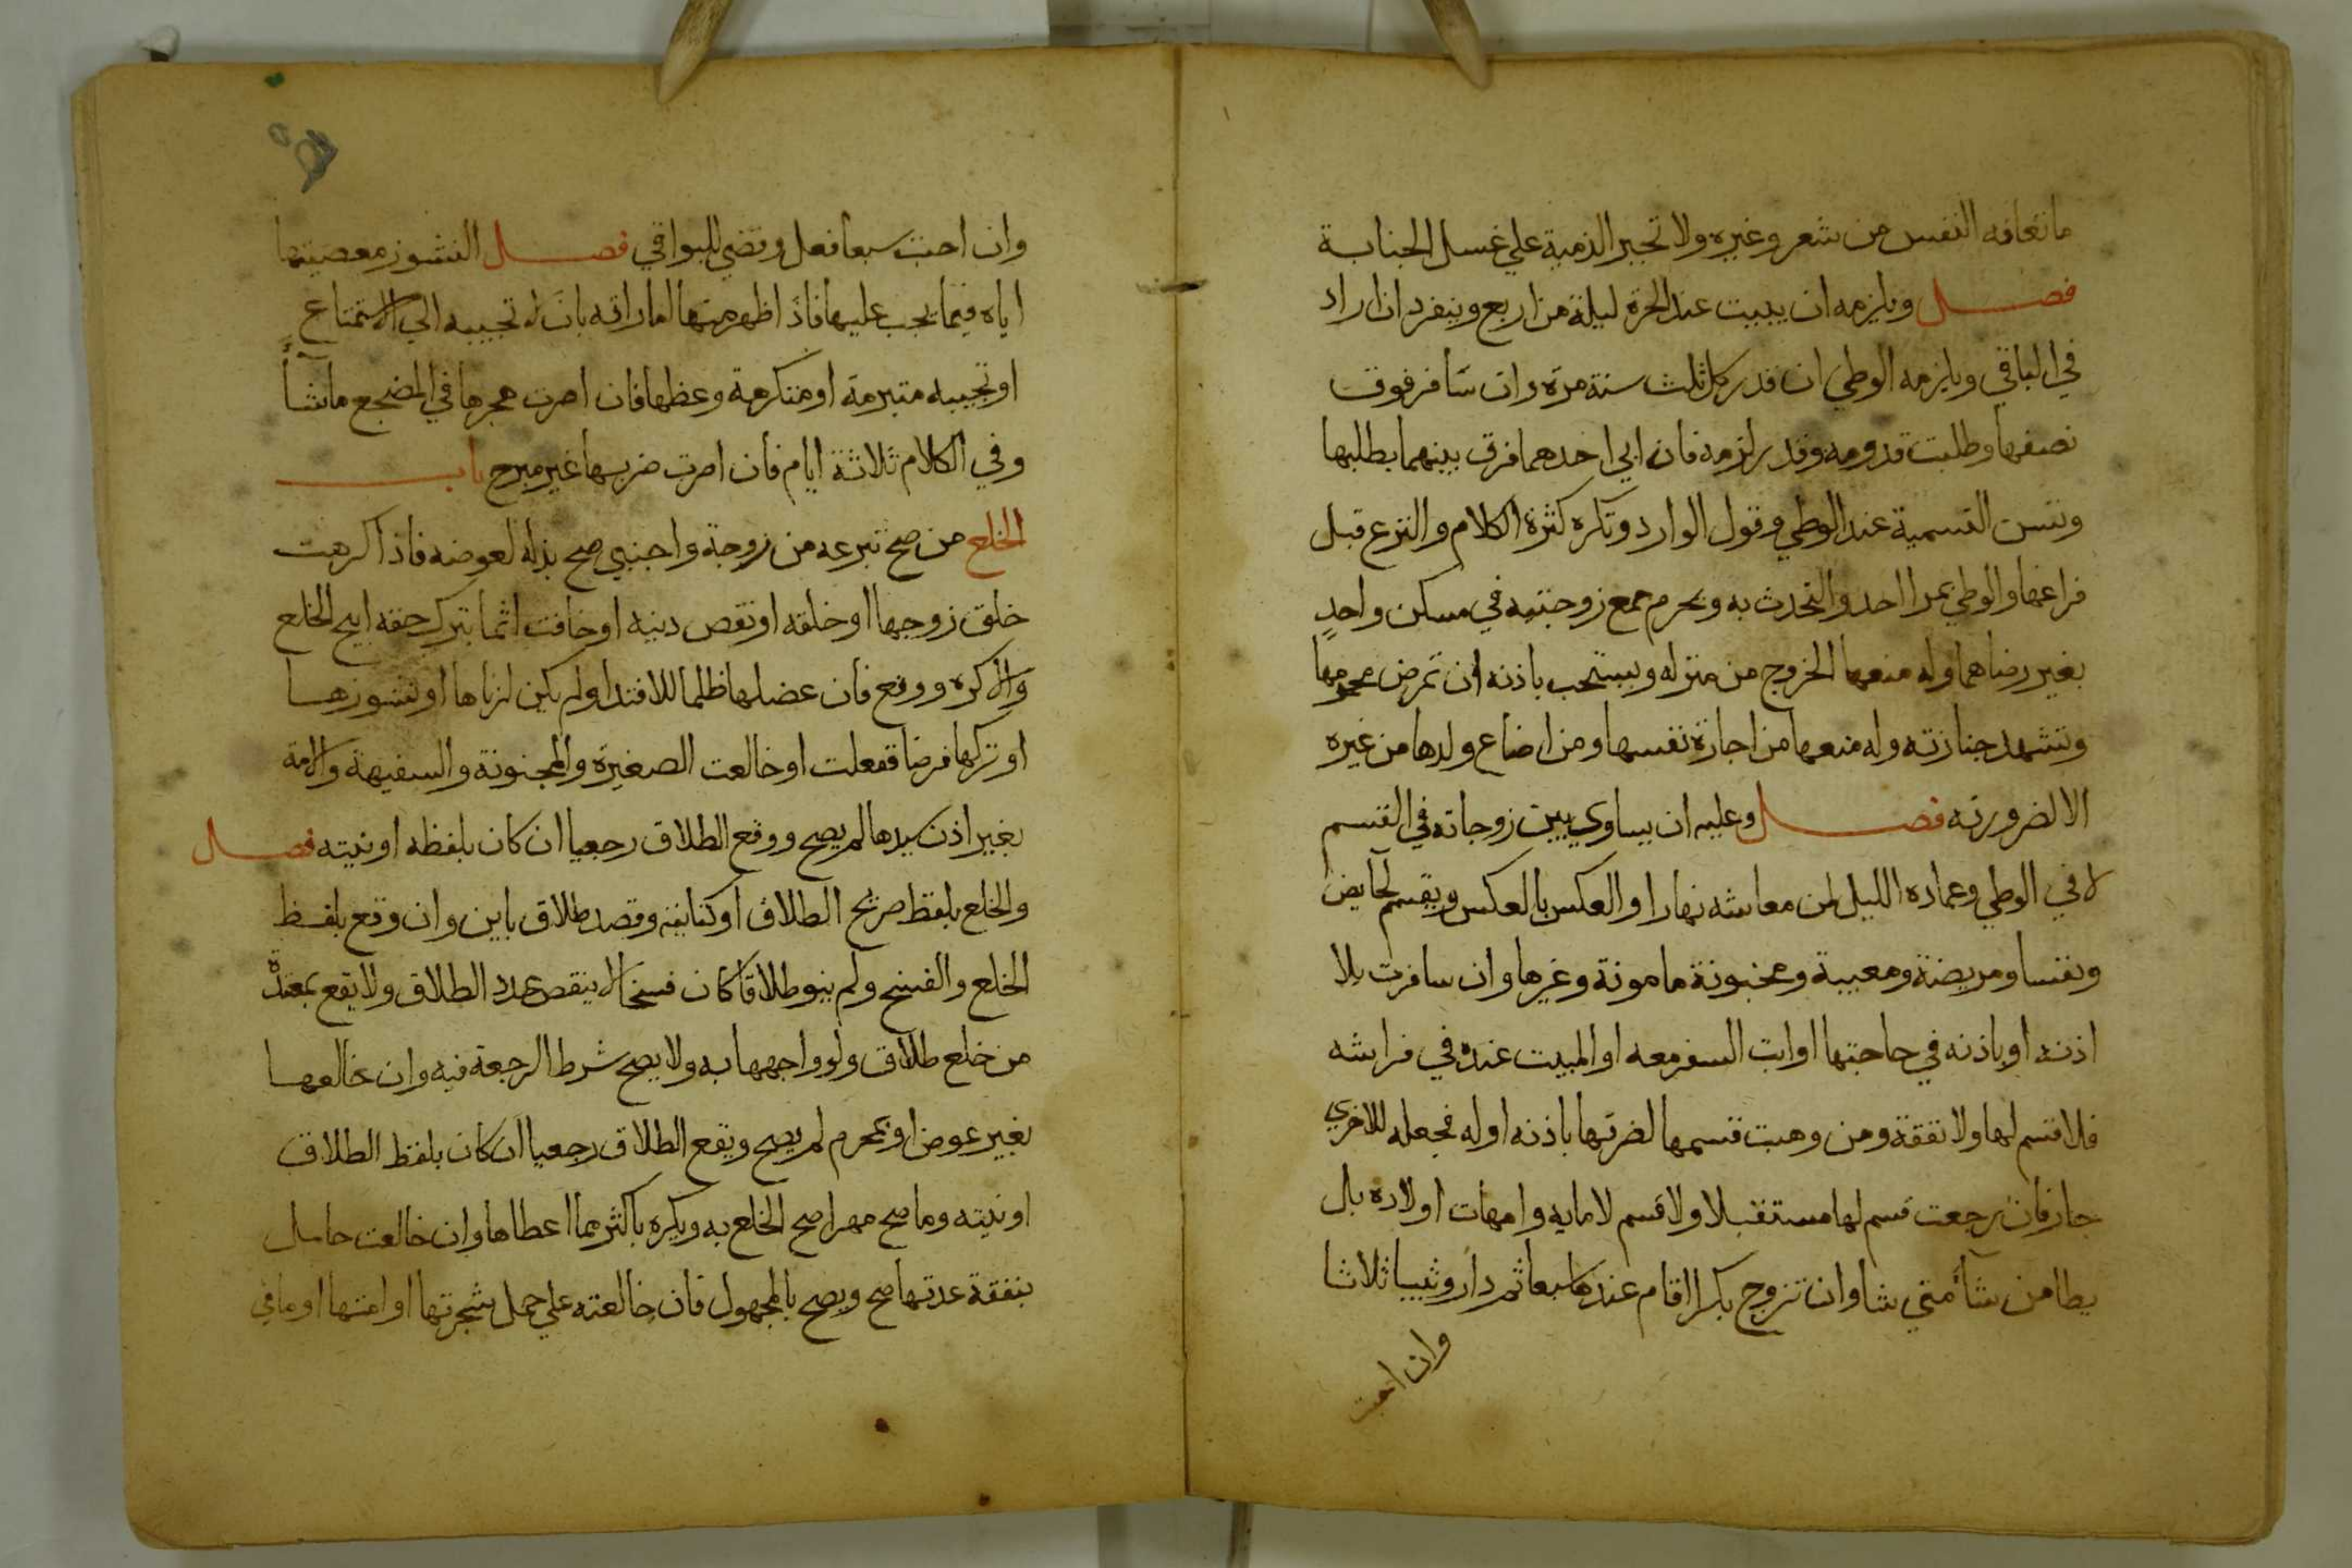 ما تعافه النفس من شعر وغيره ولا تجبر الذمية علي غسل الجنابة
فصل ويلزمه ان يبيت عند الحرة ليلة من اربع وينفرد ان اراد
في الباقي ويلزمه الوطي ان قدر كل ثلث سنة مرة وان سافر فوق
نصفها وطلبت قدومه وقدر لزمه فان ابي احدهما فرق بينهما بطلبها
وتسن التسمية عند الوطي وقول الوارد وتكره كثرة الكلام والنزع قبل
فراغها والوطي بمرا احد والتحدث به ويحرم جمع زوجتيه في مسكن واحد
بغير رضاهما وله منعها الخروج من منزله ويستحب باذنه ان تمرض محرمها
وتشهد جنازته وله منعها من اجارة نفسها ومن ارضاع ولدها من غيره
الا لضرورته فصل وعليه ان يساوي بين زوجاته في القسم
لا في الوطي وعماده الليل لمن معاشه نهارا والعكس بالعكس ويقسم لحايض
ونفسا ومريضة ومعيبة ومجنونة مامونة وغيرها وان سافرت بلا
اذنه او باذنه في حاجتها او ابت السفر معه او المبيت عنده في فراشه
فلا قسم لها ولا نفقة ومن وهبت قسمها لضرتها باذنه او له فجعله للاخري
جاز فان رجعت قسم لها مستقبلا ولا قسم لامايه وامهات اولاده بل
يطا من شا متي شا وان تزوج بكرا اقام عندها سبعا ثم دار وثيبا ثلاثا
وان احبت
وان احبت سبعا فعل وقضي للبواقي فصل النشوز معصيتها
اياه فيما يجب عليها فاذا ظهر منها اماراته بان لا تجيبه الي الاستمتاع
او تجيبه متبرمة او متكرهة وعظها فان اصرت هجرها في المضجع ما شا
وفي الكلام ثلاثة ايام فان اصرت ضربها غير مبرح باب
الخلع من صح تبرعه من زوجة واجنبي صح بذله لعوضه فاذا كرهت
خلق زوجها او خلقه او نقص دينه او خافت اثما بترك حقه ابيح الخلع
والا كره ووقع فان عضلها ظلما للافتدا ولم يكن لزناها او نشوزها
او تركها فرضا ففعلت او خالعت الصغيرة والمجنونة والسفيهة والامة
بغير اذن سيدها لم يصح ووقع الطلاق رجعيا ان كان بلفظه او نيته فصل
والخلع بلفظ صريح الطلاق او كنايته وقصد طلاق باين وان وقع بلفظ
الخلع والفسخ ولم ينو طلاقا كان فسخا لا ينقص عدد الطلاق ولا يقع بمعتدة
من خلع طلاق ولو واجهها به ولا يصح شرط الرجعة فيه وان خالعها
بغير عوض او بمحرم لم يصح ويقع الطلاق رجعيا ان كان بلفظ الطلاق
او نيته وما صح مهرا صح الخلع به ويكره باكثر مما اعطاها وان خالعت حامل
بنفقة عدتها صح ويصح بالمجهول فان خالعته علي حمل شجرتها او امتها او ما في